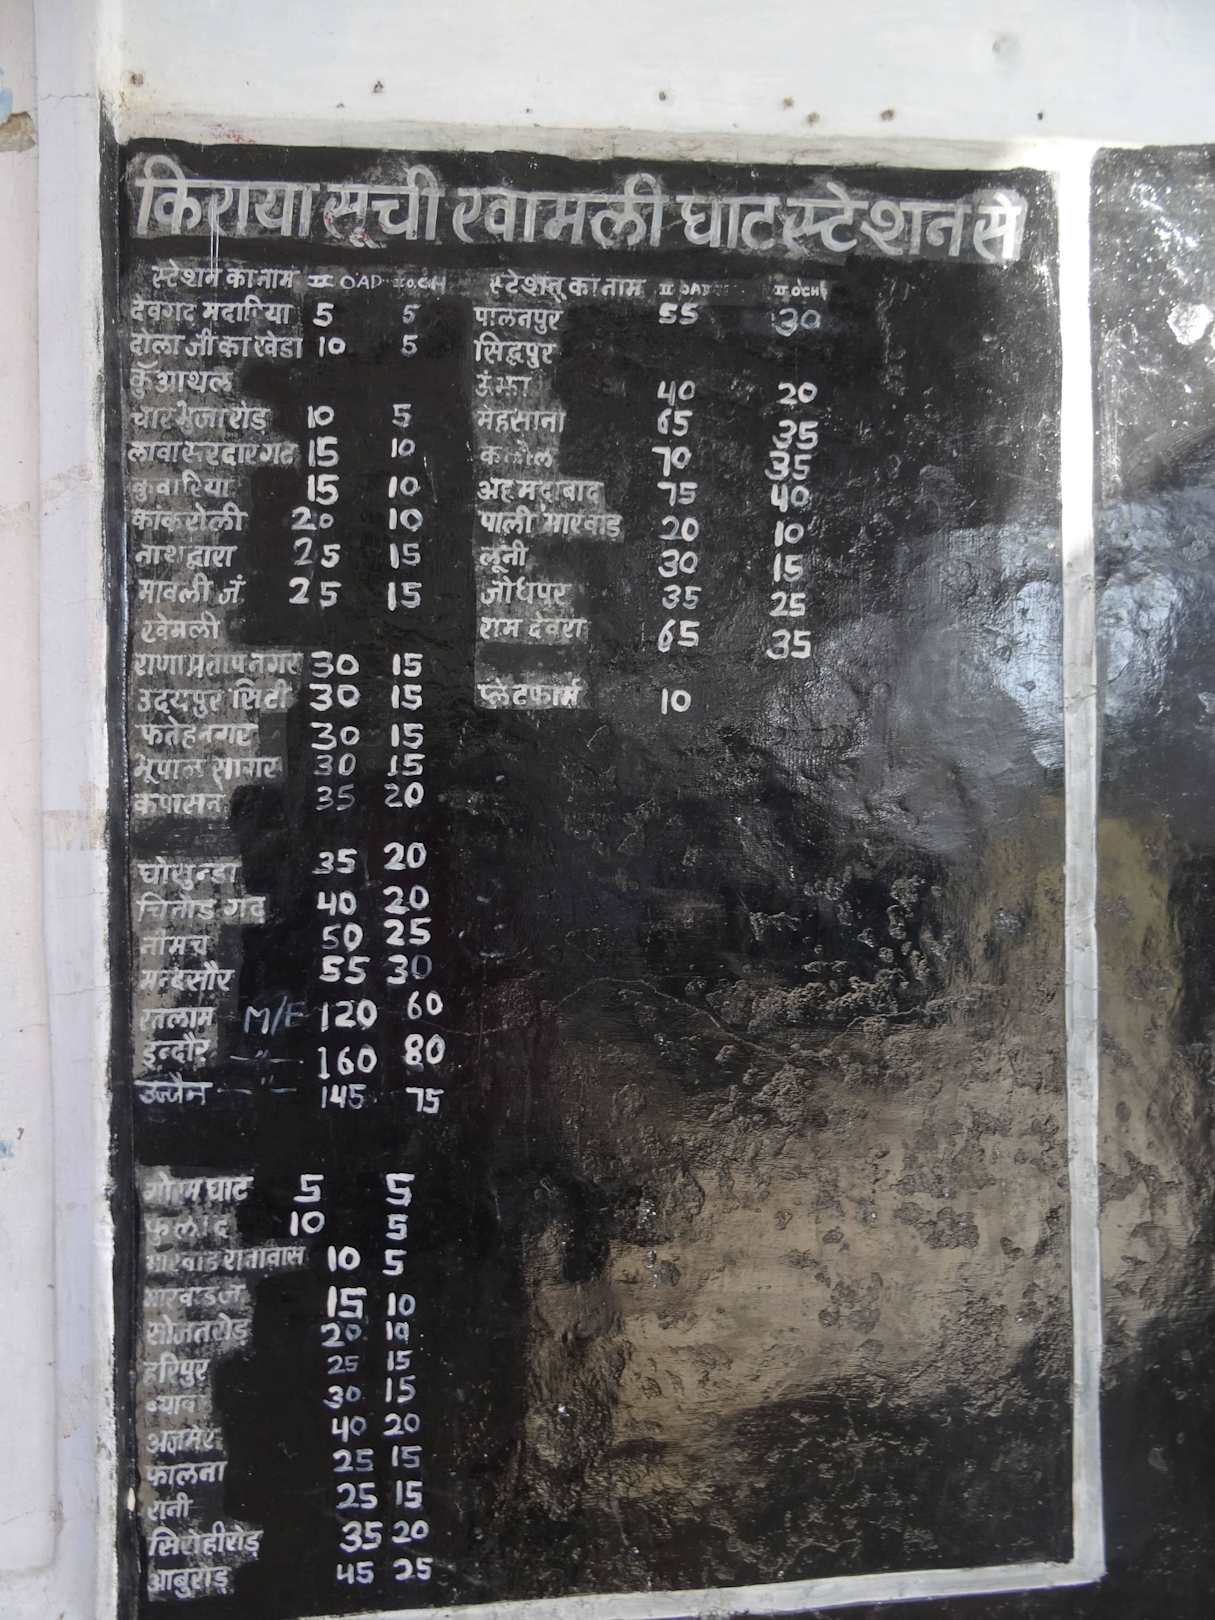 किराया सूची खामली घाट स्टेशन से
स्टेशन का नाम II OAD II O.CH
देवगढ मदारिया 5 5
दोला जी का खेडा 10 5
कुँआथल
चारभुजा रोड 10 5
लावा सरदारगढ 15 10
कुवारिया 15 10
कांकरोली 20 10
नाथद्वारा 25 15
मावली जं 25 15
खेमली
राणा प्रताप नगर 30 15
उदयपुर सिटी 30 15
फतेहनगर 30 15
भूपाल सागर 30 15
कपासन 35 20
घोसुन्डा 35 20
चितोड गढ 40 20
नीमच 50 25
मन्दसौर 55 30
रतलाम M/E 120 60
इन्दौर —"— 160 80
उज्जैन —"— 145 75
गोरम घाट 5 5
फुलाद 10 5
मारवाड रानावास 10 5
मारवाड जं 15 10
सोजत रोड 20 10
हरिपुर 25 15
ब्यावर 30 15
अजमेर 40 20
फालना 25 15
रानी 25 15
सिरोही रोड़ 35 20
आबुरोड़ 45 25
स्टेशन का नाम II OAD II OCH
पालनपुर 55 30
सिद्धपुर
उंझा 40 20
मेहसाना 65 35
कलोल 70 35
अहमदाबाद 75 40
पाली मारवाड़ 20 10
लूनी 30 15
जोधपुर 35 25
राम देवरा 65 35
प्लेटफार्म 10